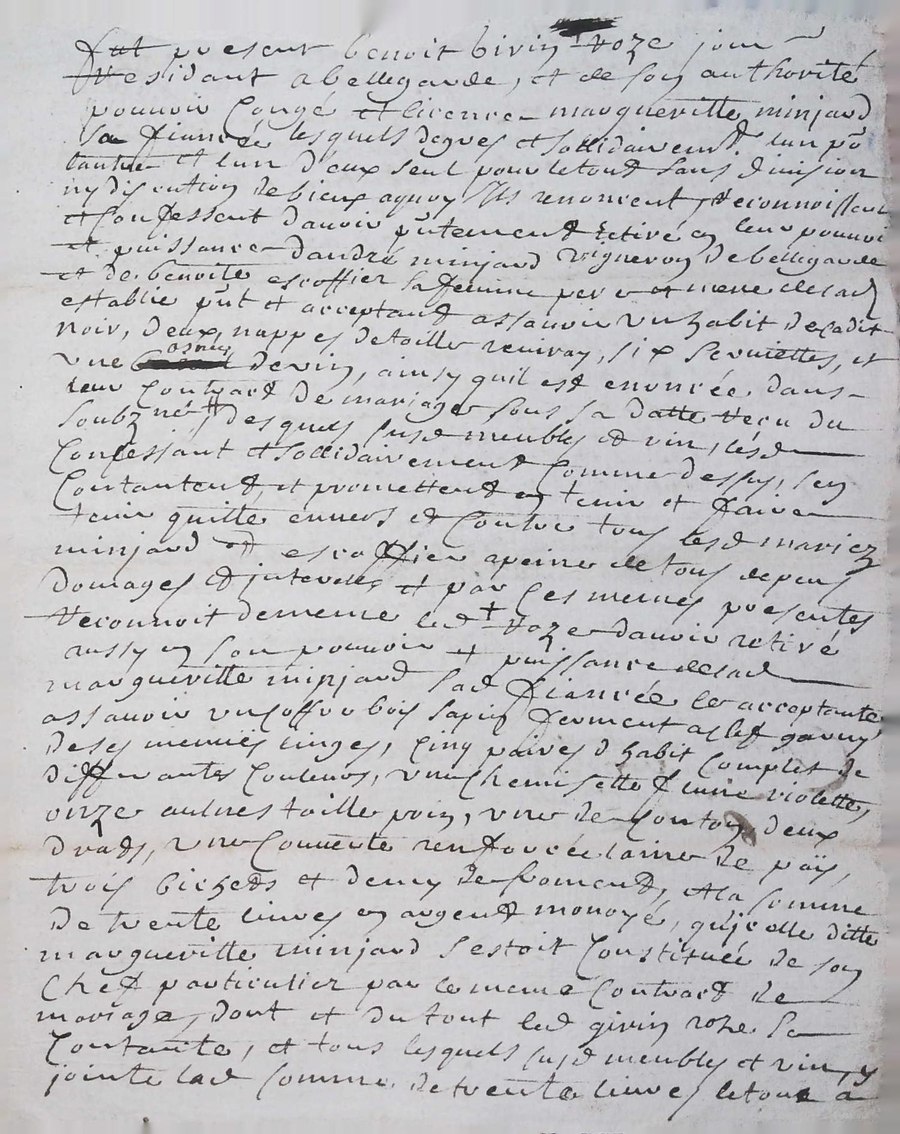 fut present benoit birin Roze jour
Residant a bellegarde, et de son authorité
pouvoir Congé et licence margueritte minjard
Sa fiancée lesquels de gres et sollidairemt lun pr
lautre et lun deux seul pour le tout sans division
ny discution de biens a quoy ils renoncent, Reconnoissent
et Confessent davoir pntement Retiré en leur pouvoir
et puissance dandré minjard vigneron de bellegarde
et de benoite escoffier sa femme pere et mere de lad
establie pnt et acceptant assavoir un habit de cadit
noir, deux nappes de toille, six serviettes, et
une asnée de vin, ainsy quil est enoncée dans
leur Contract de mariage sous sa datte Receu du
soubzné desquels susd meubles et vin, lesd
Confessant et sollidairement Comme dessus, sen
Contantent, et promettent en tenir et faire
tenir quitte envers et Contre tous lesd mariez
minjard et escoffier a peine de tous depens
domages et interests, et par ces memes presentes
Reconnoit de meme led Roze davoir retiré
aussy en son pouvoir et puissance de lad
margueritte minjard sad fiancée et acceptante
assavoir un coffre bois sapin ferment a clef garny
de ses menues linges, Cinq paires dhabit complet de
differantes Couleurs, une Chemisette laine violette,
onze aulnes toille, une de Couton, deux
drads, une Couverte renforcée laine de païs,
trois bichets et demy de froment, et la somme
De trente livres en argent monoyé, qu'icelle ditte
margueritte minjard sestoit Constituée de son
Chef particulier par le meme Contract de
mariage, dont et du tout led roze se
Contante, et tous lesquels susd meubles et vin, y
jointe lad somme de trente livres le tout a